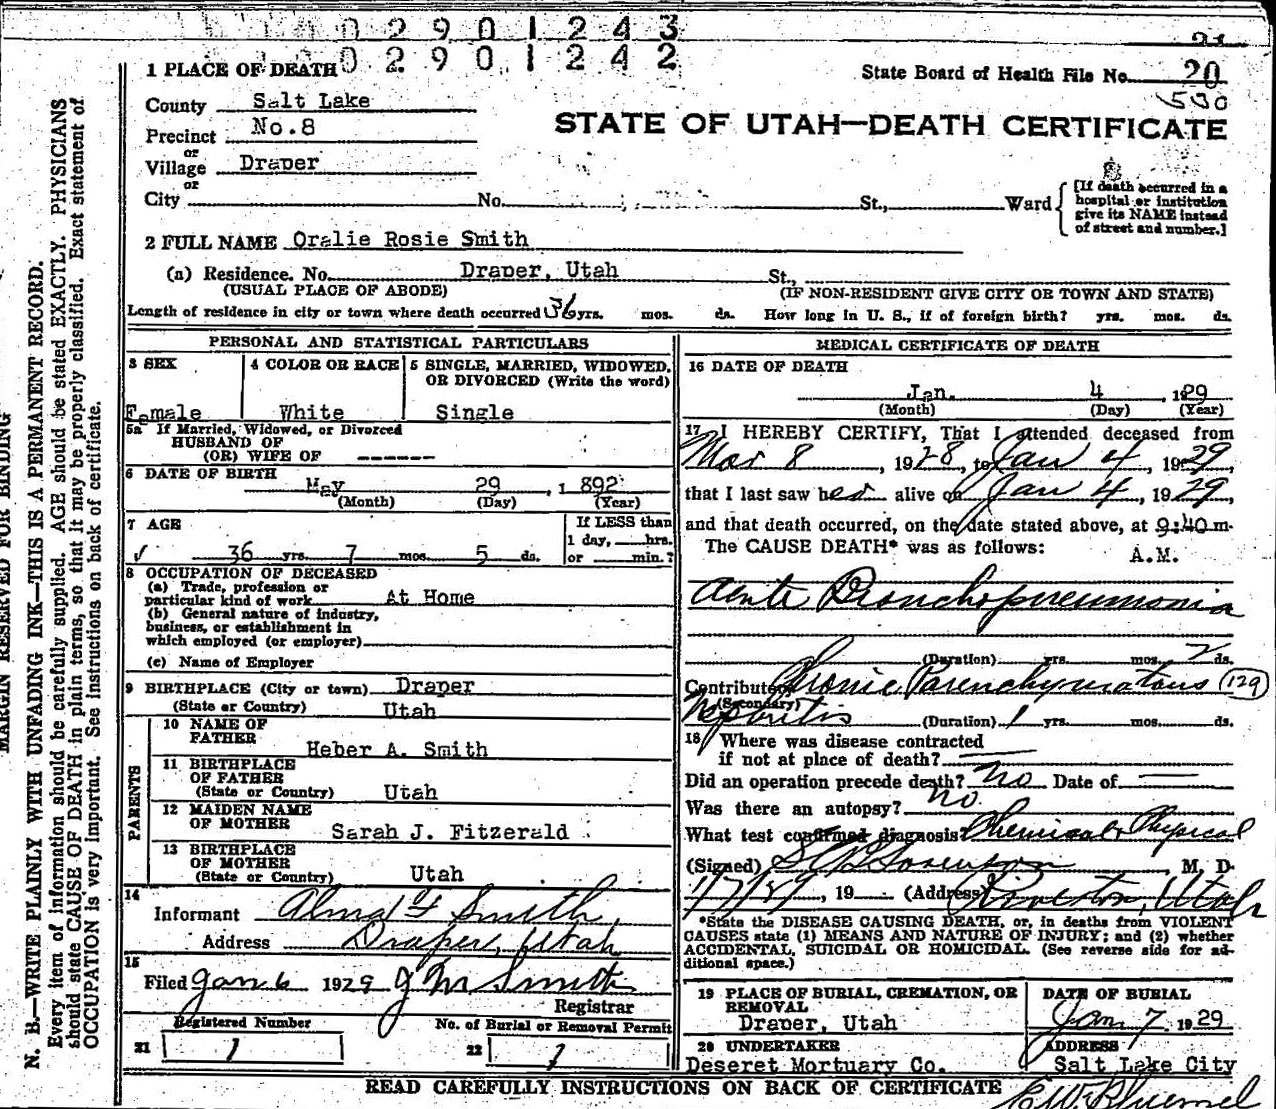 0 2 9 0 1 2 4 3
0 2 9 0 1 2 4 2
1 PLACE OF DEATH
State Board of Health File No. 20
530
County Salt Lake
STATE OF UTAH—DEATH CERTIFICATE
Precinct No.8
or
Village Draper
or
City No. St., Ward
[If death occurred in a
hospital or institution
give its NAME instead
of street and number.]
2 FULL NAME Oralie Rosie Smith
(a) Residence. No. Draper, Utah St.,
(USUAL PLACE OF ABODE) (IF NON-RESIDENT GIVE CITY OR TOWN AND STATE)
Length of residence in city or town where death occurred 36 yrs. mos. ds. How long in U. S., if of foreign birth? yrs. mos. ds.
PERSONAL AND STATISTICAL PARTICULARS
3 SEX 4 COLOR OR RACE 5 SINGLE, MARRIED, WIDOWED,
OR DIVORCED (Write the word)
Female White Single
5a If Married, Widowed, or Divorced
HUSBAND OF
(OR) WIFE OF ------
6 DATE OF BIRTH
May 29, 1892
(Month) (Day) (Year)
7 AGE If LESS than
1 day, hrs.
√ 36 yrs. 7 mos. 5 ds. or min.?
8 OCCUPATION OF DECEASED
(a) Trade, profession or
particular kind of work At Home
(b) General nature of industry,
business, or establishment in
which employed (or employer)
(c) Name of Employer
9 BIRTHPLACE (City or town) Draper
(State or Country) Utah
PARENTS
10 NAME OF
FATHER Heber A. Smith
11 BIRTHPLACE
OF FATHER
(State or Country) Utah
12 MAIDEN NAME
OF MOTHER Sarah J. Fitzerald
13 BIRTHPLACE
OF MOTHER
(State or Country) Utah
14
Informant Alma F Smith,
Address Draper, Utah
15
Filed Jan 6 1929 J M Smith
Registrar
Registered Number No. of Burial or Removal Permit
21 1 22 1
MEDICAL CERTIFICATE OF DEATH
16 DATE OF DEATH
Jan. 4, 1929
(Month) (Day) (Year)
17 I HEREBY CERTIFY, That I attended deceased from
Mar 8, 1928, to Jan 4, 1929,
that I last saw her alive on Jan 4, 1929,
and that death occurred, on the date stated above, at 9:40 m.
The CAUSE DEATH* was as follows: A.M.
Acute Bronchopneumonia
(Duration) yrs. mos. 2 ds.
Contributory Chronic Parenchymatous (129)
(Secondary)
Nephritis (Duration) 1 yrs. mos. ds.
18 Where was disease contracted
if not at place of death?
Did an operation precede death? no Date of
Was there an autopsy? no.
What test confirmed diagnosis? Chemical & Physical
(Signed) Sorenson, M. D.
1/7/29, 19 (Address) Riverton, Utah
*State the DISEASE CAUSING DEATH, or, in deaths from VIOLENT
CAUSES state (1) MEANS AND NATURE OF INJURY; and (2) whether
ACCIDENTAL, SUICIDAL OR HOMICIDAL. (See reverse side for ad-
ditional space.)
19 PLACE OF BURIAL, CREMATION, OR
REMOVAL
Draper, Utah
DATE OF BURIAL
Jan 7 1929
20 UNDERTAKER
Deseret Mortuary Co.
ADDRESS
Salt Lake City
READ CAREFULLY INSTRUCTIONS ON BACK OF CERTIFICATE
MARGIN RESERVED FOR BINDING
N. B.—WRITE PLAINLY WITH UNFADING INK—THIS IS A PERMANENT RECORD.
Every item of information should be carefully supplied. AGE should be stated EXACTLY. PHYSICIANS
should state CAUSE OF DEATH in plain terms, so that it may be properly classified. Exact statement of
OCCUPATION is very important. See Instructions on back of certificate.